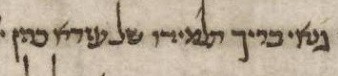 נטאי בריך תלמידו של עזרא כהן